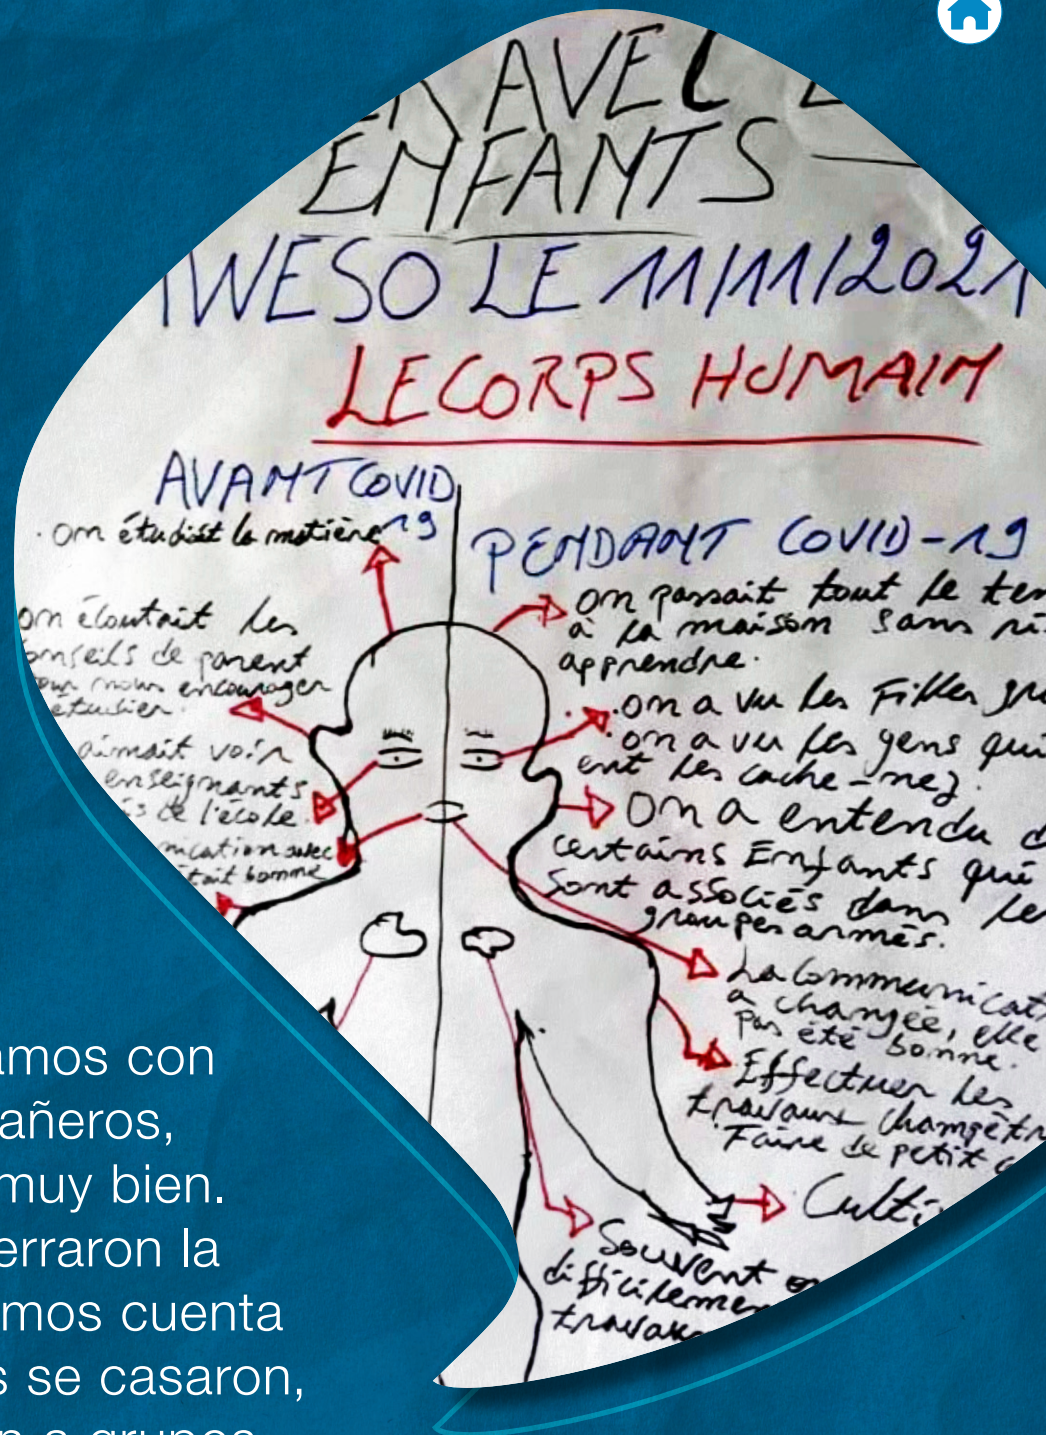 AVEC
ENFANTS
WESO LE 11/11/2021
LE CORPS HUMAIN
AVANT COVID
19
. on étudiait la matière
on écoutait les
conseils de parent
pour nous encourager
étudier.
aimait voir
enseignants
de l'école.
avec
était bonne
PENDANT COVID-19
on passait tout le
à la maison sans
apprendre.
. on a vu les Filles
. on a vu les gens qui
ent les cache-nez.
On a entendu
certains Enfants qui
sont associés dans
groupes armés.
La
a changée, elle
pas été bonne.
Effectuer les
travaux
Faire de petit
Souvent
amos con
añeros,
muy bien.
erraron la
mos cuenta
s se casaron,
n a grupos